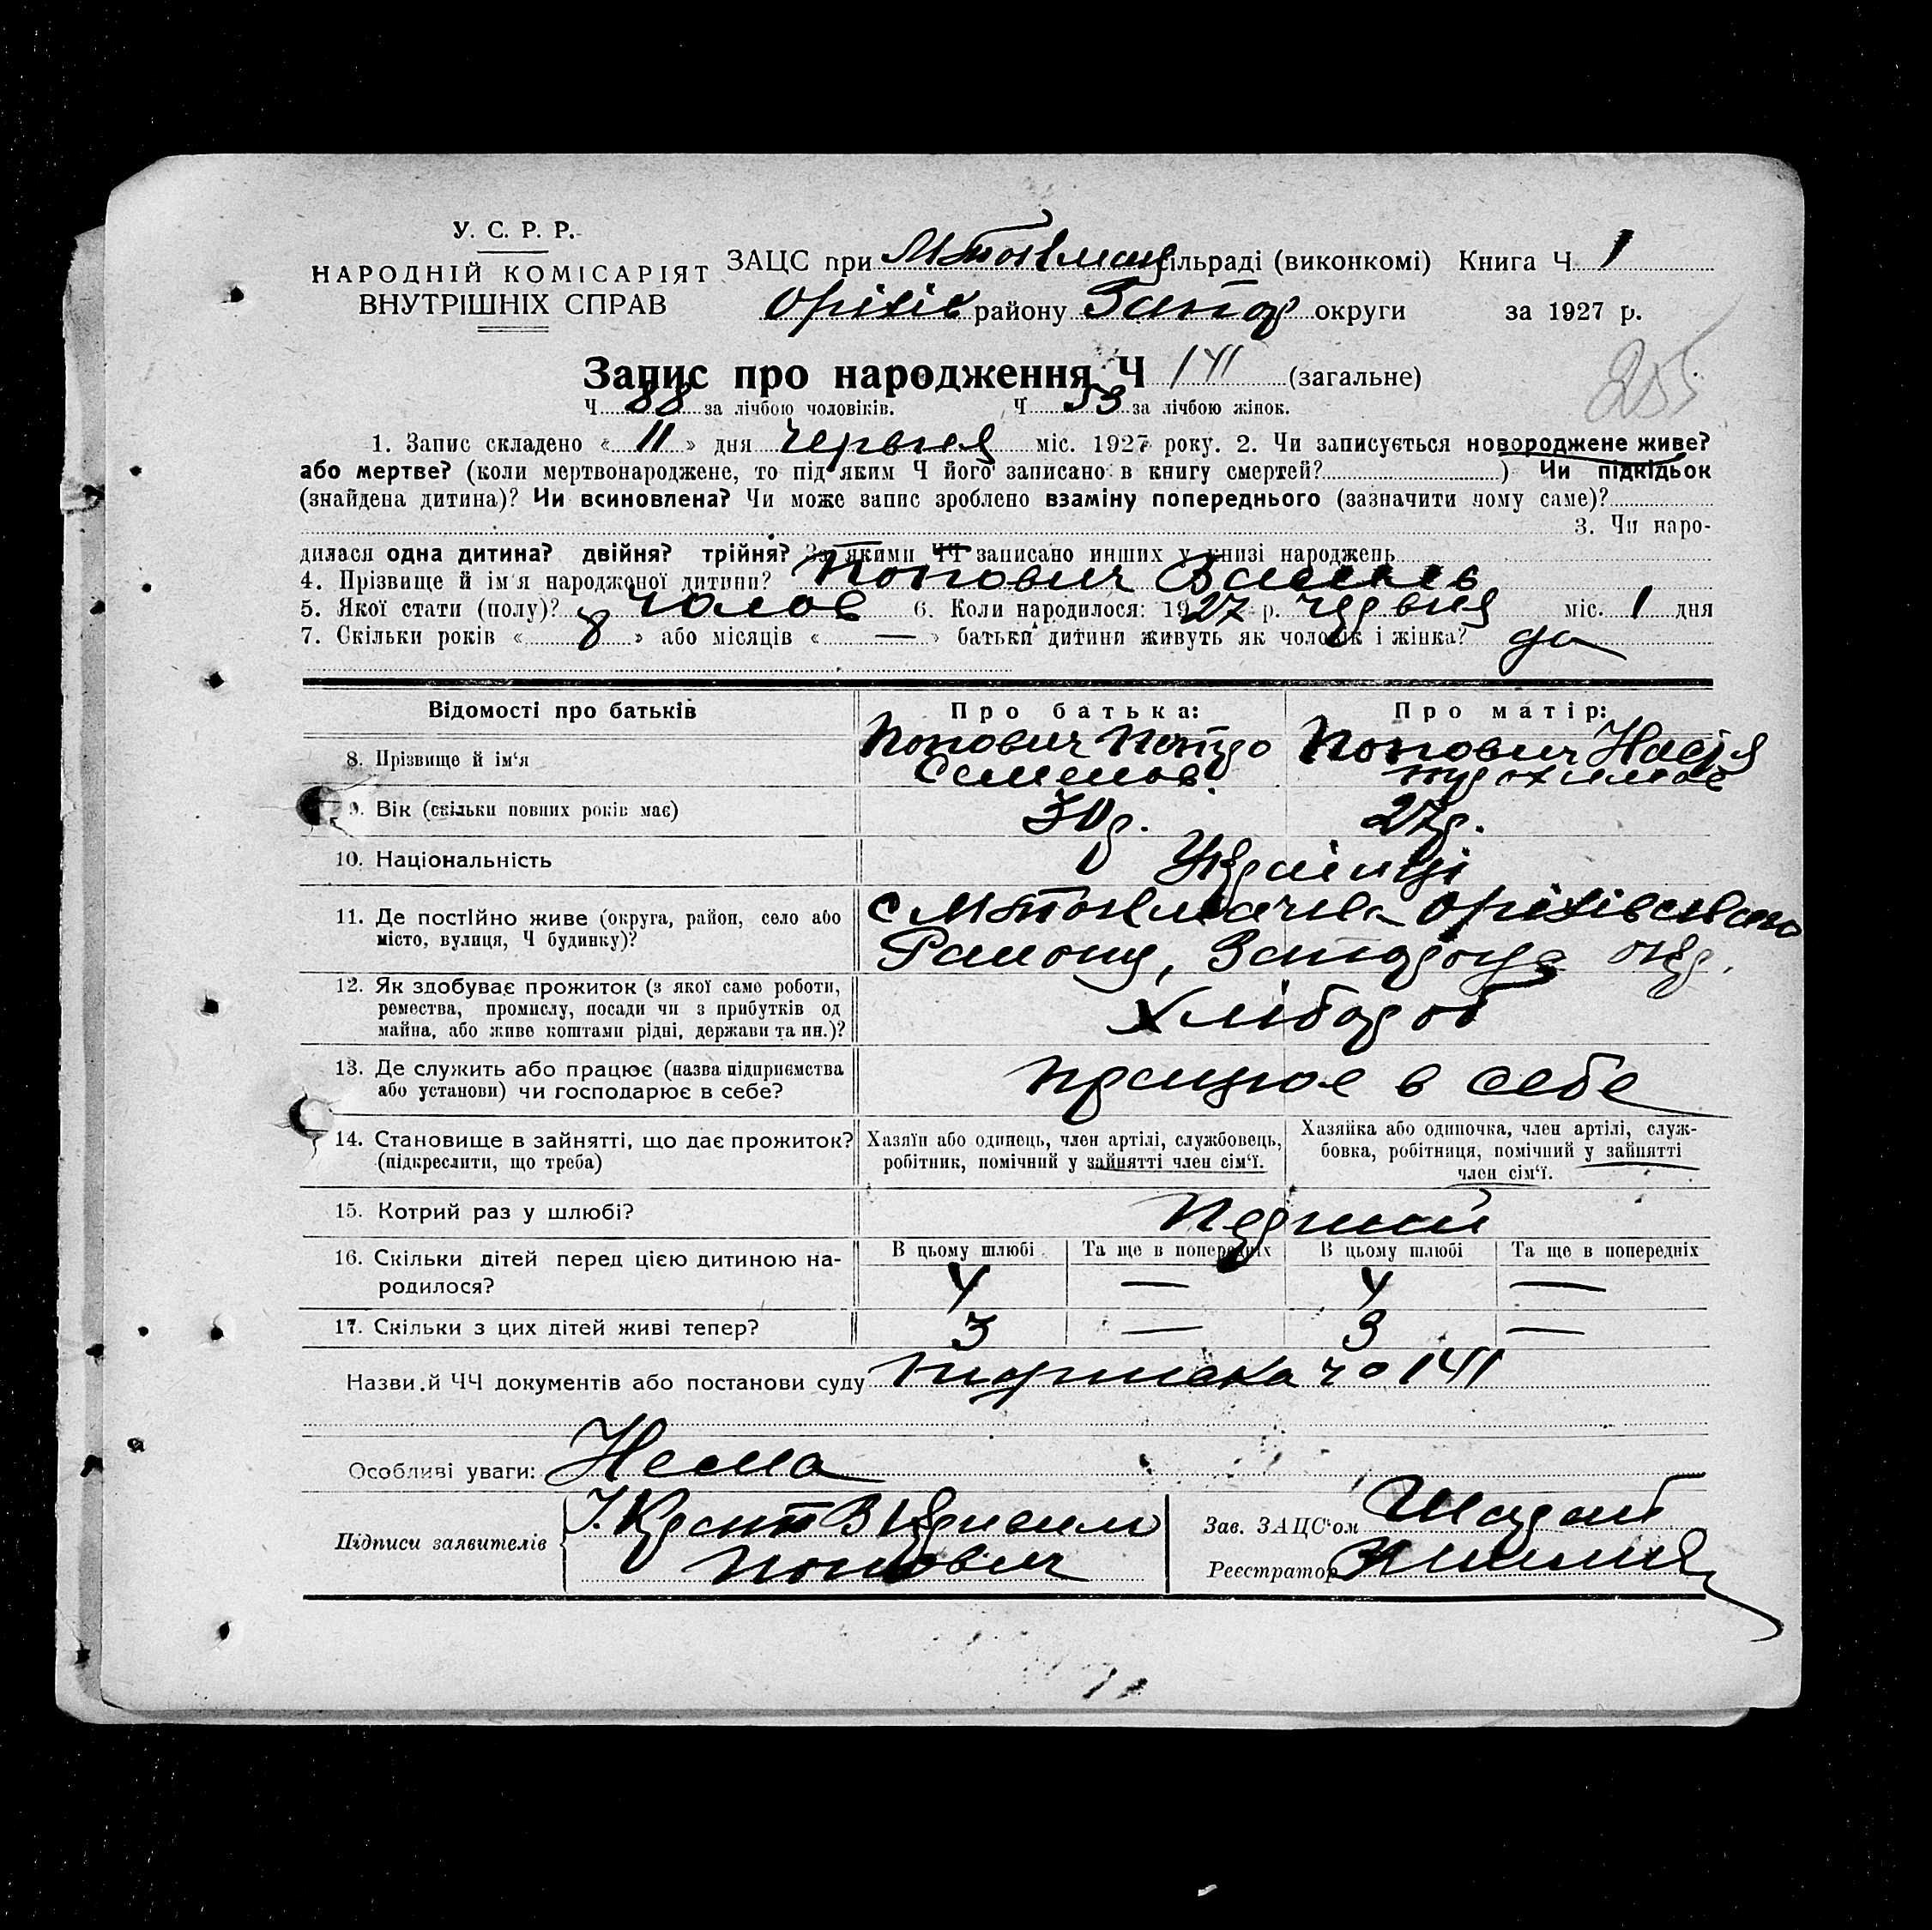 У. С. Р. Р.
НАРОДНІЙ КОМІСАРІЯТ
ВНУТРІШНІХ СПРАВ
ЗАЦС при М-Токмац сільраді (виконкомі) Книга Ч 1
Оріхів району Запор округи за 1927 р.
255
Запис про народження Ч 141 (загальне)
Ч 88 за лічбою чоловіків. Ч 53 за лічбою жінок.
1. Запис складено « 11 » дня Червня міс. 1927 року. 2. Чи записується новороджене живе?
або мертве? (коли мертвонароджене, то під яким Ч його записано в книгу смертей? ) Чи підкідьок
(знайдена дитина)? Чи всиновлена? Чи може запис зроблено взаміну попереднього (зазначити чому саме)?
3. Чи наро-
дилася одна дитина? двійня? трійня? За якими ЧЧ записано инших у книзі народжень
4. Прізвище й ім'я народженої дитини? Попович Василь
5. Якої стати (полу)? Чолов 6. Коли народилося: 1927 р. червня міс. 1 дня
7. Скільки років « 8 » або місяців « — » батьки дитини живуть як чоловік і жінка? да
Відомості про батьків Про батька: Про матір:
8. Прізвище й ім'я Попович Петро Попович Настя
Семенов.
9. Вік (скільки повних років має) 30 р. 27 р.
10. Національність Українці
11. Де постійно живе (округа, район, село або с М-Токмачка Оріхівського
місто, вулиця, Ч будинку)? Району, окр.
12. Як здобуває прожиток (з якої само роботи,
ремества, промислу, посади чи з прибутків од Хлібороб
майна, або живе коштами рідні, держави та ин.)?
13. Де служить або працює (назва підприємства
або установи) чи господарює в себе? працює в себе
14. Становище в зайнятті, що дає прожиток?
(підкреслити, що треба)
Хазяїн або одинець, член артілі, службовець,
робітник, помічний у зайнятті член сім'ї.
Хазяйка або одиночка, член артілі, служ-
бовка, робітниця, помічний у зайнятті
член сім'ї.
15. Котрий раз у шлюбі? Перший
16. Скільки дітей перед цією дитиною на-
родилося?
В цьому шлюбі Та ще в попередніх В цьому шлюбі Та ще в попередніх
4 — 4 —
17. Скільки з цих дітей живі тепер? 3 — 3 —
Назви й ЧЧ документів або постанови суду 141
Особливі уваги: Нема
Підписи заявителів
Попович
Зав. ЗАЦС'ом
Реєстратор